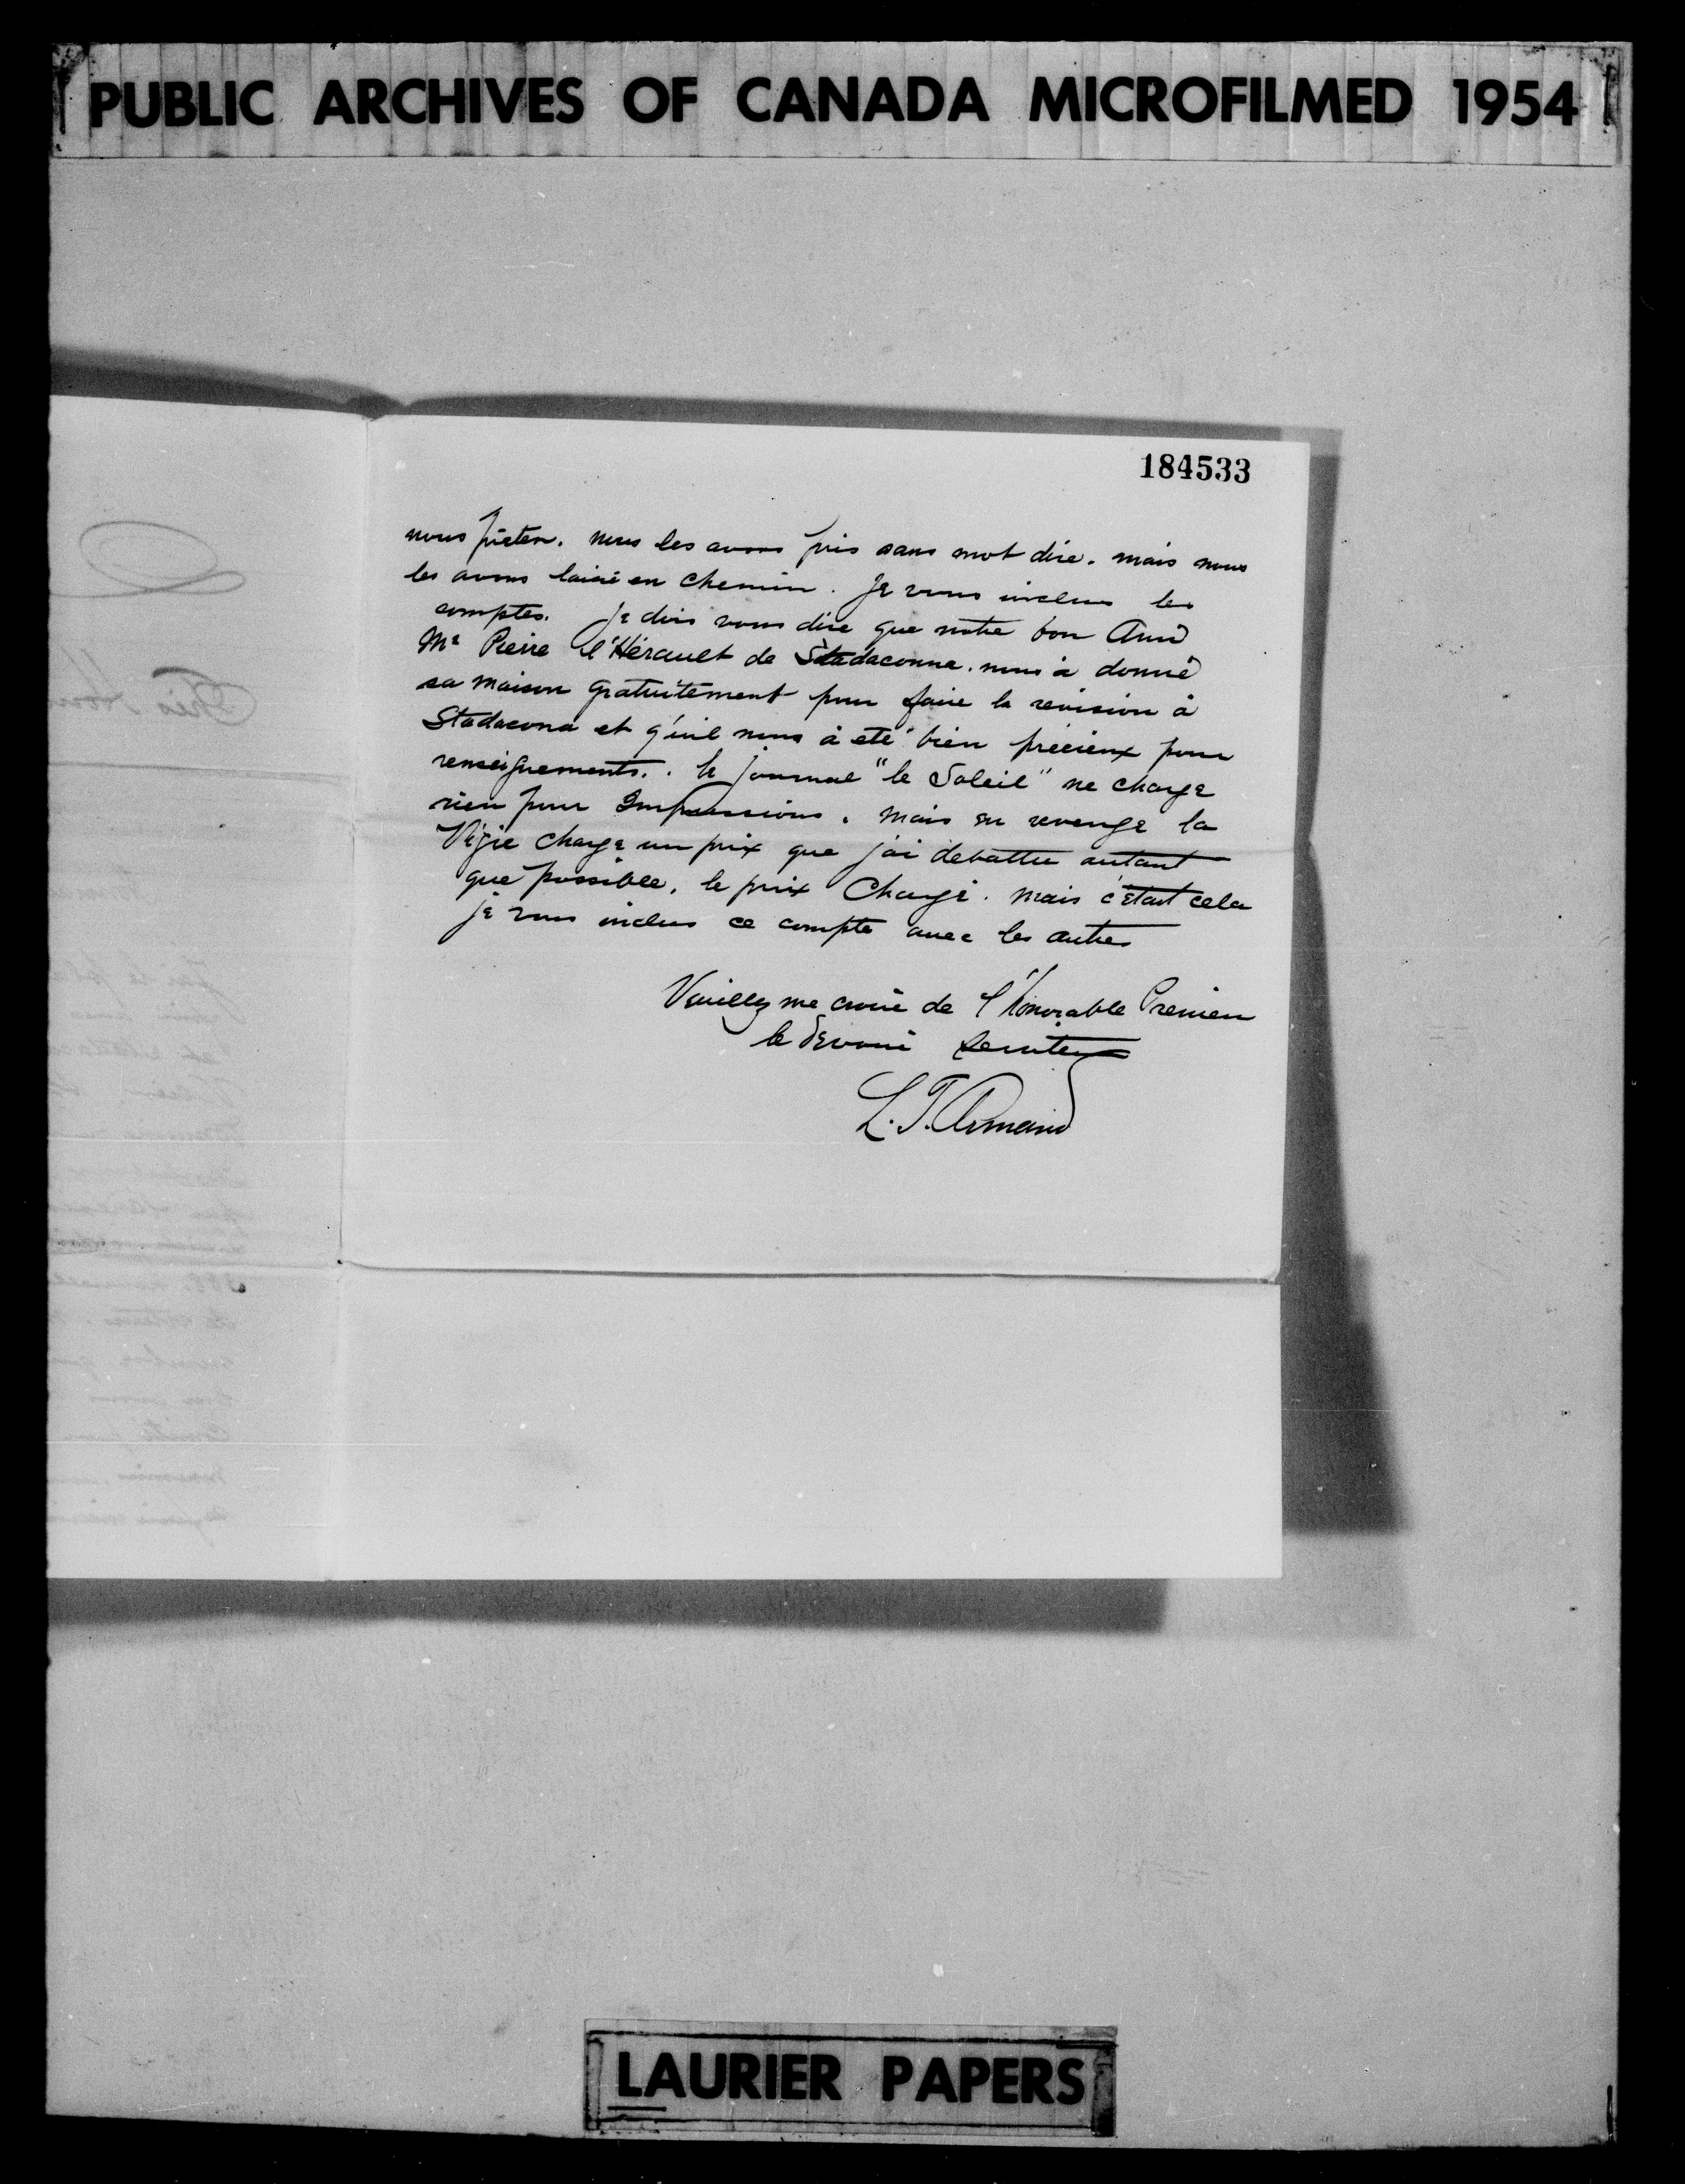 PUBLIC ARCHIVES OF CANADA MICROFILMED 1954
184533
nous prêter. nous les avons pris sans mot dire. mais nous
les avons laissé en chemin. Je vous inclus les
comptes. Je dois vous dire que notre bon Ami
Mr Pierre l'Hérault de Stadaconna. nous à donné
sa maison gratuitement pour faire la revision à
Stadacona et q'uil nous à eté bien précieux pour
renseignements. . le journal "le Soleil" ne charge
rien pour Impressions. mais en revenge la
Vigie charge un prix que j'ai debattu autant
que possible. le prix Chargé. mais c'etait cela
je vous inclus ce compte avec les autres
Veuillez me croire de l'Honorable Premier
le devoué Serviteur
L. T. Armand
LAURIER PAPERS